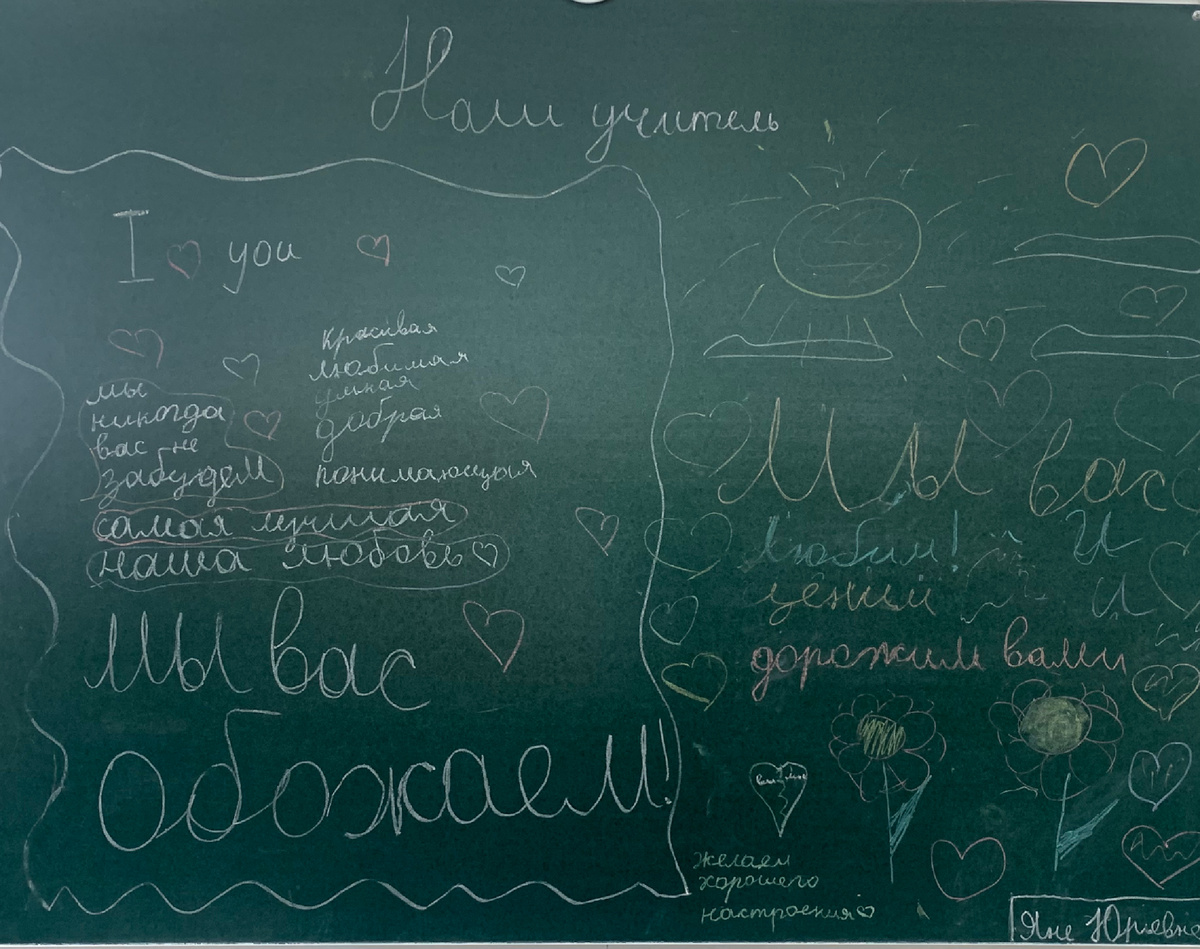 Наш учитель
I you
мы
никогда
вас не
забудем
красивая
любимая
умная
добрая
понимающая
самая лучшая
наша любовь
Мы вас
обожаем!
Мы вас
любим! И
ценим И
дорожим вами
Желаем
хорошего
настроения
Яне Юрьевн